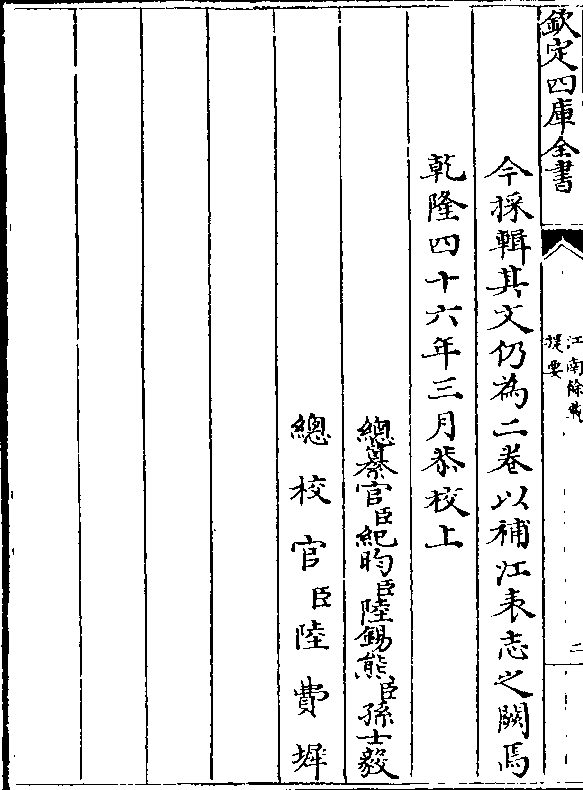 欽定四庫全書
江南餘載
提要
二
今採輯其文仍為二卷以補江表志之闕焉
乾隆四十六年三月恭校上
總纂官臣紀昀臣陸錫熊臣孫士毅
總校官臣陸費墀